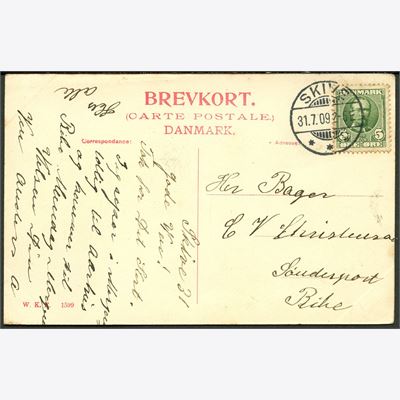 BREVKORT.
(CARTE POSTALE.)
DANMARK.
Correspondance:
Adresse:
SKIVE
31.7.09
DANMARK
5
ØRE ØRE
Her Bager
C V Christensen
Sønderport
Ribe
Skive 31
gode Ven!
Tak for Dit Kort.
Jeg rejser i Morgen
til Aarhus
og kommer til
Ribe Mandag
Hilsen Din
Ven
Hils
alle
W. K. 1599